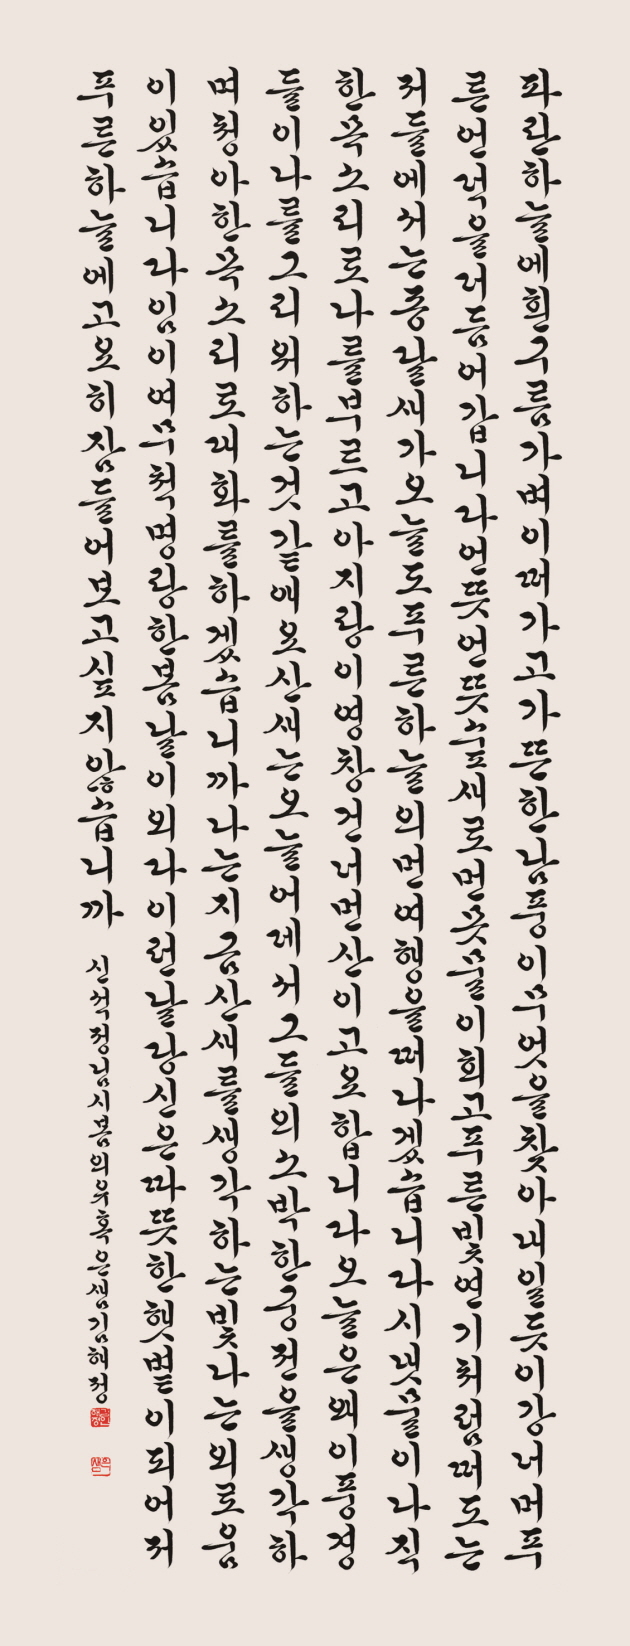 파란하늘에흰구름가벼이떠가고가뜬한남풍이무엇을찾아내일듯이강너머푸
른언덕을더듬어갑니다언뜻언뜻숲새로먼못물이희고푸른빛연기처럼떠도는
저들에서는종달새가오늘도푸른하늘의먼여행을떠나겠습니다시냇물이나직
한목소리로나를부르고아지랑이영창건너먼산이고요합니다오늘은왜이풍경
들이나를그리워하는것같애요산새는오늘어데서그들의소박한궁전을생각하
며청아한목소리로대화를하겠습니까나는지금산새를생각하는빛나는외로움
이있습니다임이여무척명랑한봄날이외다이런날당신은따뜻한햇볕이되어저
푸른하늘에고요히잠들어보고싶지않습니까 신석정님시봄의유혹은샘김해정